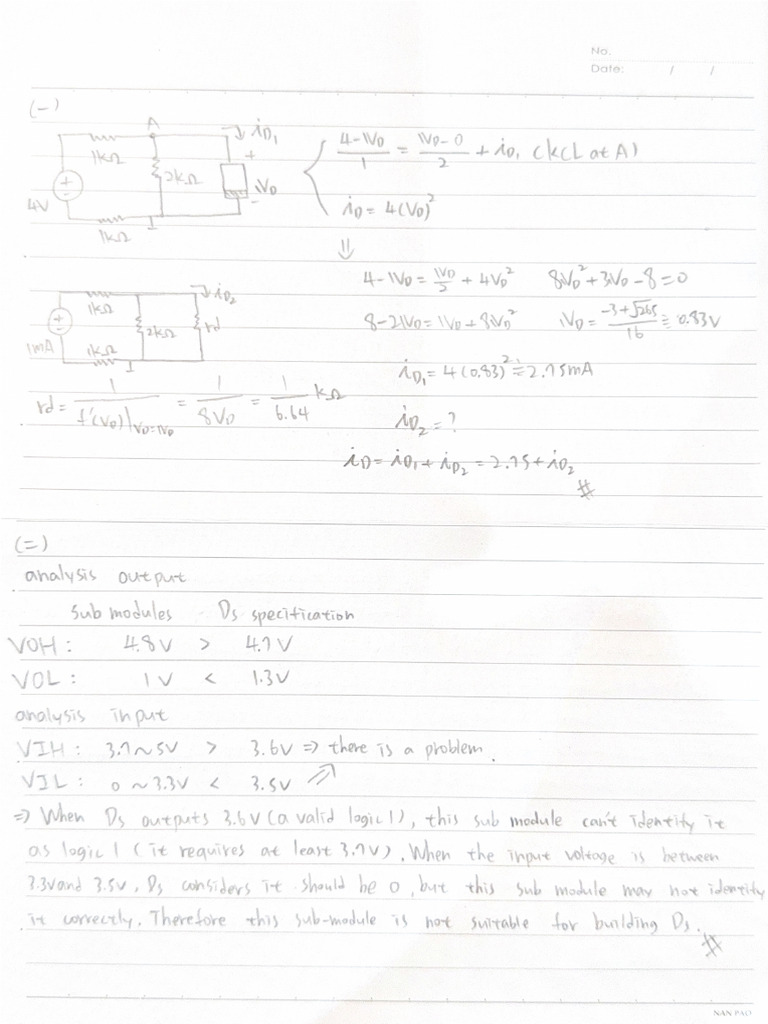 No.
Date: / /
(一)
A
iD1
1kΩ
2kΩ
+
VD
-
4V
1kΩ
(4-VD)/1 = (VD-0)/2 + iD1 (KCL at A)
iD = 4(VD)²
⇓
4-VD = VD/2 + 4VD² 8VD²+3VD-8=0
8-2VD = VD + 8VD² VD = (-3+√265)/16 ≅ 0.83V
iD2
1kΩ
2kΩ
rd
1mA
1kΩ
iD1 = 4(0.83)² ≅ 2.75mA
rd = 1/f'(VD)|VD=VD = 1/8VD = 1/6.64 kΩ
iD2 = ?
iD = iD1 + iD2 = 2.75 + iD2
#
(二)
analysis output
sub modules Ds specification
VOH: 4.8V > 4.7V
VOL: 1V < 1.3V
analysis input
VIH: 3.7~5V > 3.6V ⇒ there is a problem.
VIL: 0~3.3V < 3.5V ⇗
⇒ When Ds outputs 3.6V (a valid logic 1), this sub module can't identity it
as logic 1 (it requires at least 3.7V). When the input voltage is between
3.3V and 3.5V, Ds considers it should be 0, but this sub module may not identity
it correctly. Therefore this sub-module is not suitable for building Ds.
#
NAN PAO